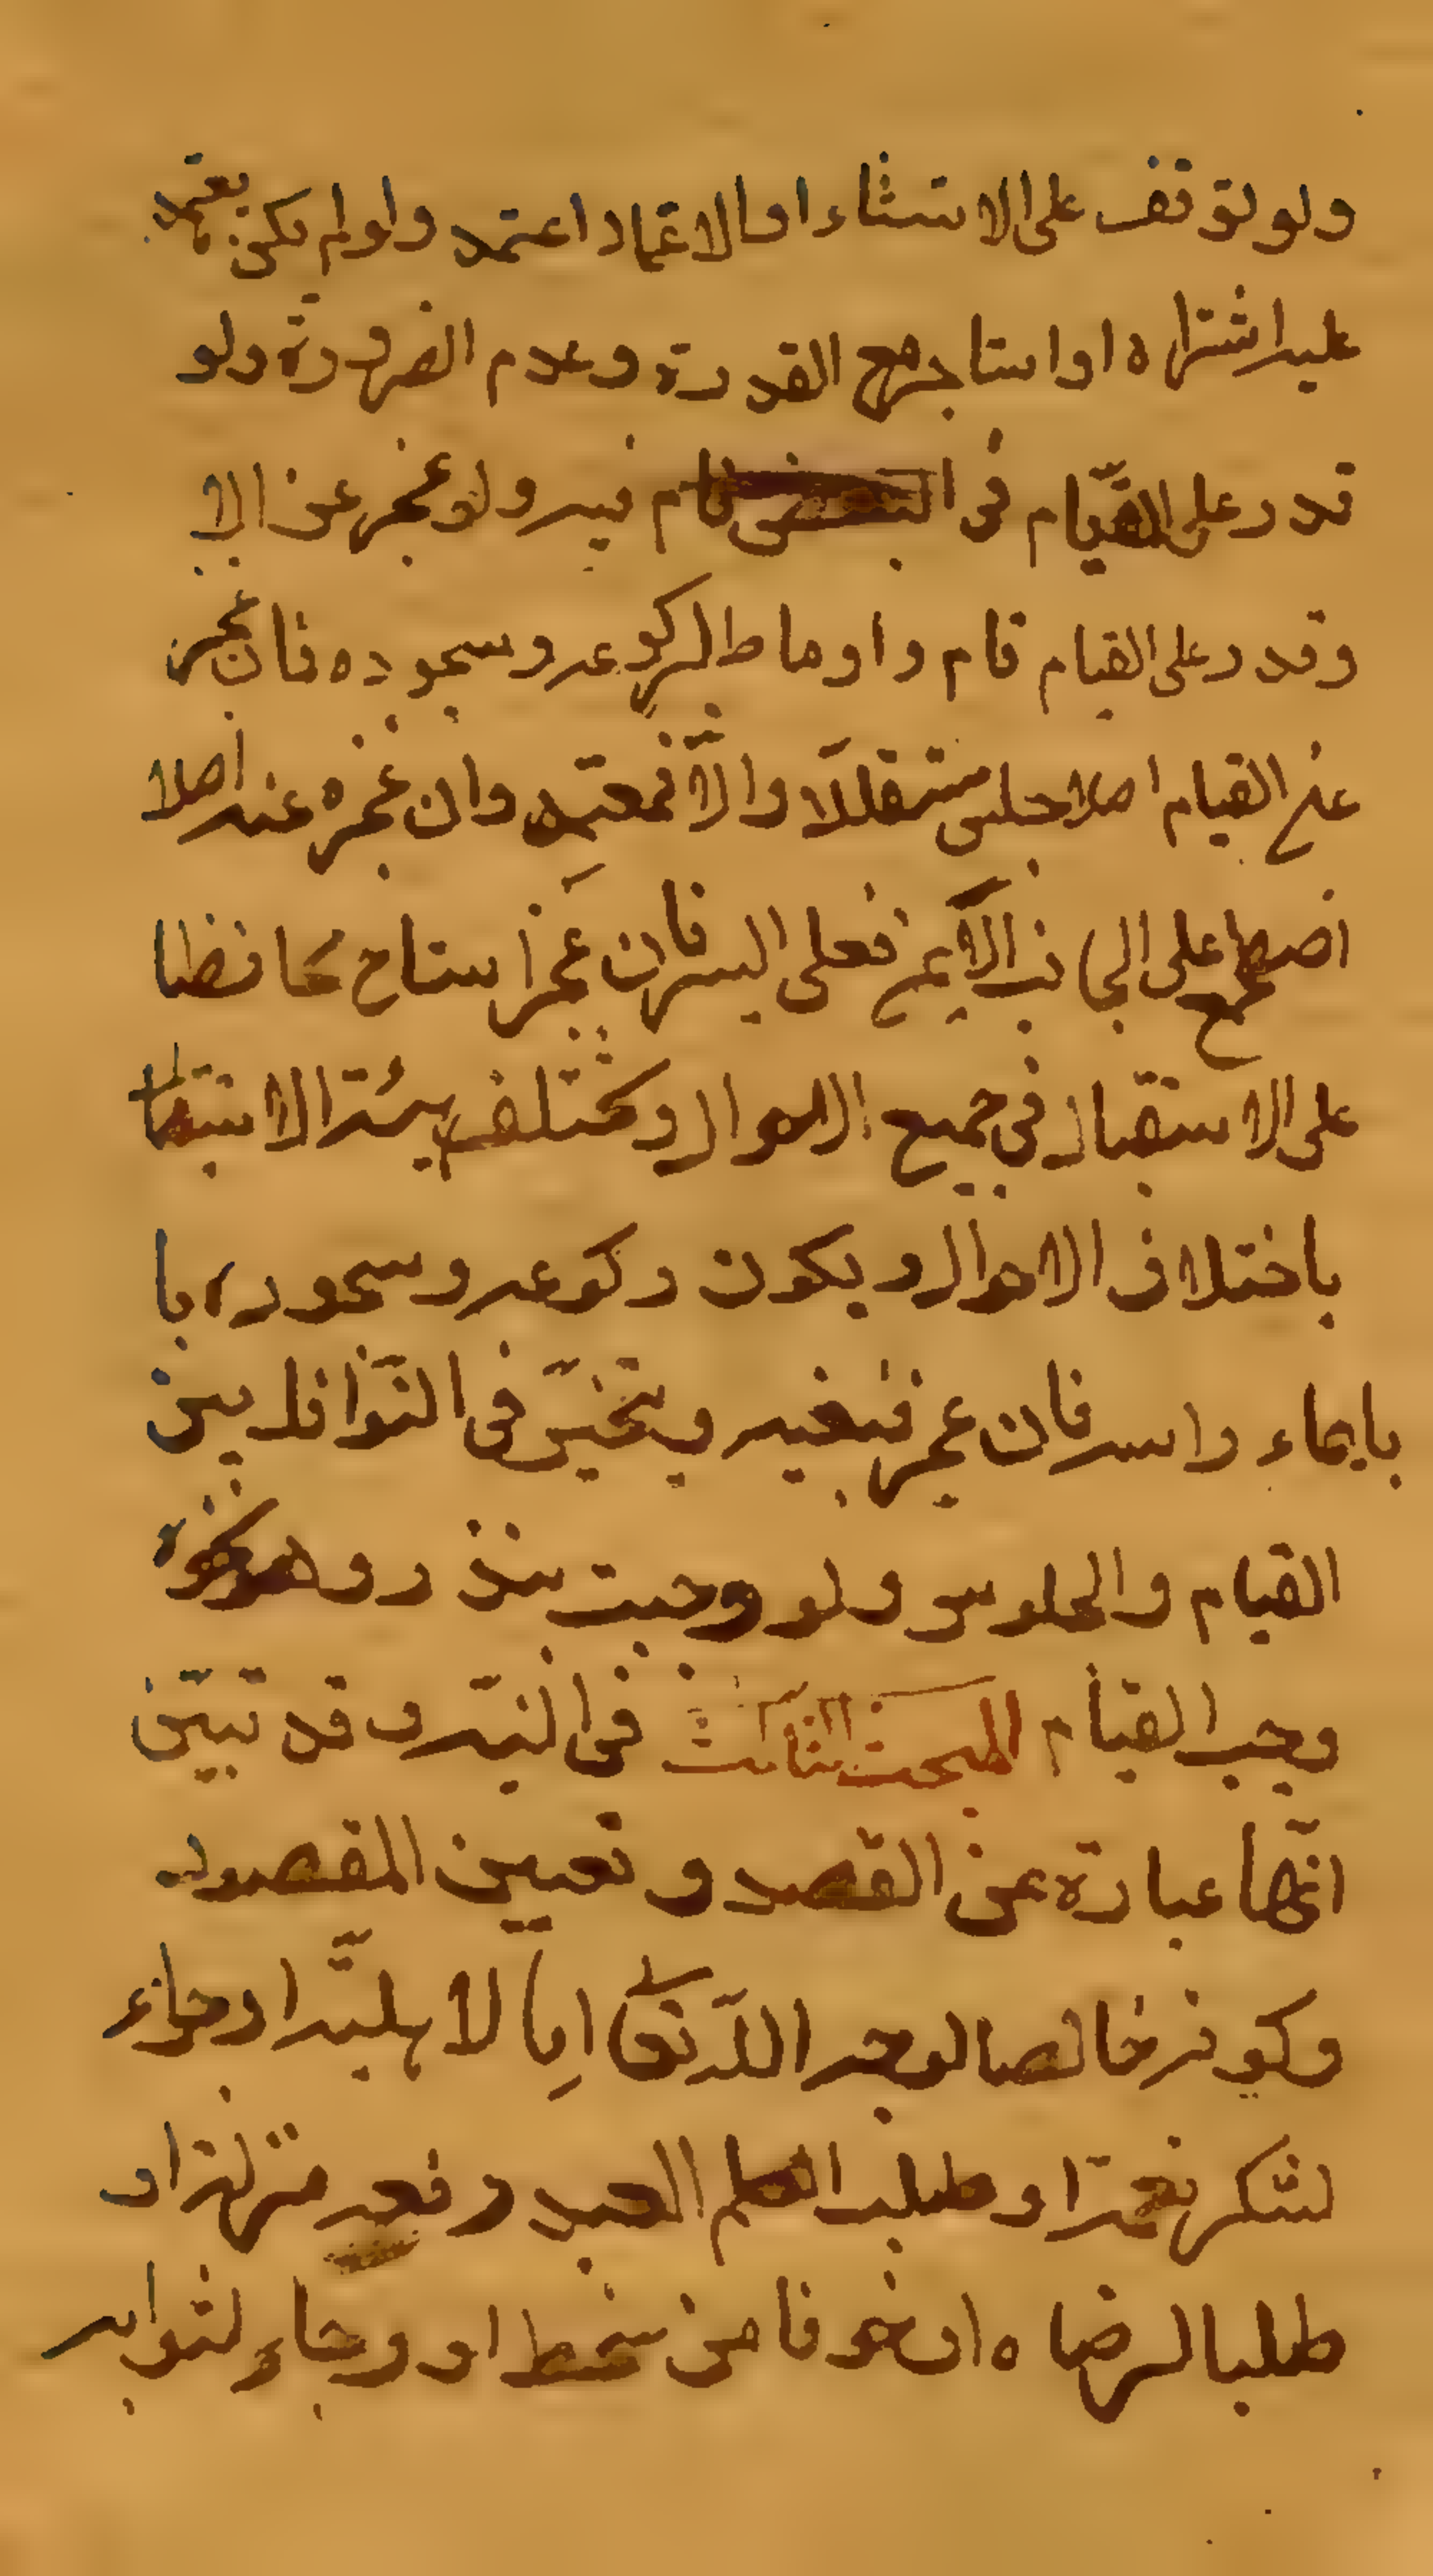 ولو توقف على الاستثناء او الاعتماد اعتمد ولو لم يكن يعتمد
عليه اشتراه او استاجر مع القدرة وعدم الضرورة ولو
قدر على القيام في البعض قام فيه ولو عجز عن الا
وقدر على القيام قام واوما للركوعه وسجوده فان عجز
عن القيام اصلا جلس مستقلاً والّا فمعتمِد وان عجزه عنه اصلا
اضطجع على الجانب الأيمن فعلى اليسر فان عجز استاح محافظا
على الاستقبال في جميع الاحوال وتختلف هيئة الاستقبا
باختلاف الاحوال ويكون ركوعه وسجوده با
بايماء راسه فان عجز فبغيره ويتخيّر في النّوافل بين
القيام والجلوس ولو وجبت بنذر وهو نحوه
وجب القيام المبحث الثالث في النيّة وقد تبيّن
انّها عبارة عن القصد وتعيين المقصود
وكونه خالصا لوجه اللّه تعالى اِما لاهليّة او جزاء
لشكر نعمة او طلب العلم العبد رفعه منزلة او
طلبا لرضاه او خوفا من سخط او ورجاء لثوابه